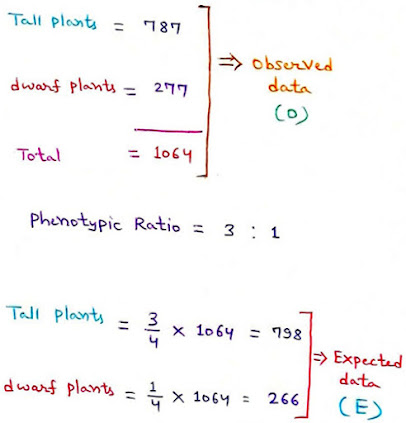 Tall plants = 787
dwarf plants = 277
Total = 1064
⇒ Observed
data
(O)
Phenotypic Ratio = 3 : 1
Tall plants = 3/4 × 1064 = 798
dwarf plants = 1/4 × 1064 = 266
⇒ Expected
data
(E)